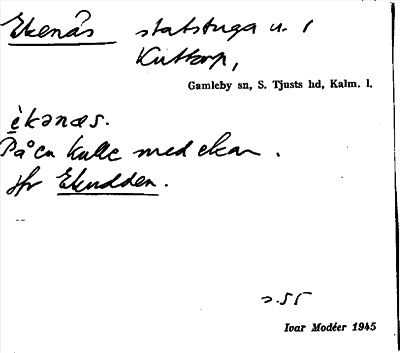 Ekenäs statstuga u. 1
Kuttorp,
Gamleby sn, S. Tjusts hd, Kalm. l.
èkənæs.
På en kulle med ekar.
jfr Ekudden.
Ivar Modéer 1945